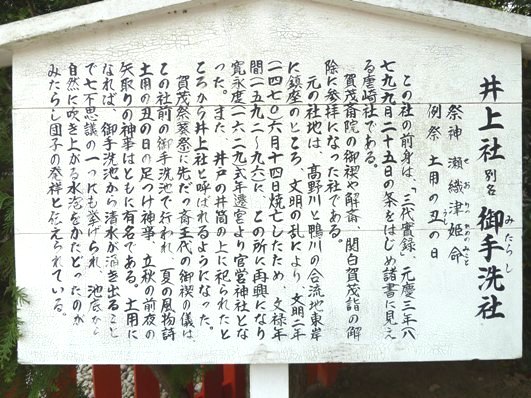 井上社 別名 御手洗社
みたらし
祭神 瀬織津姫命
せおりつひめのみこと
例祭 土用の丑の日
この社の前身は、「三代實録」、元慶三年(八
七九)九月二十五日の条をはじめ諸書に見え
る唐崎社である。
賀茂斎院の御禊や解斎、関白賀茂詣の解
除に参拝になった社である。
元の社地は、高野川と鴨川の合流地東岸
に鎮座のところ、文明の乱により、文明二年
(一四七〇)六月十四日焼亡したため、文禄年
間(一五九二〜九六)に、この所に再興になり
寛永度(一六二九)式年遷宮より官営神社とな
った。また、井戸の井筒の上に祀られたと
ころから井上社と呼ばれるようになった。
賀茂祭(葵祭)に先だつ斎王代の御禊の儀は
この社前の御手洗池で行われ、夏の風物詩
土用の丑の日の足つけ神事、立秋の前夜の
矢取りの神事はともに有名である。土用に
なれば、御手洗池から清水が湧き出ること
で七不思議の一つにも挙げられ、池底から
自然に吹き上がる水泡をかたどったのが
みたらし団子の発祥と伝えられている。